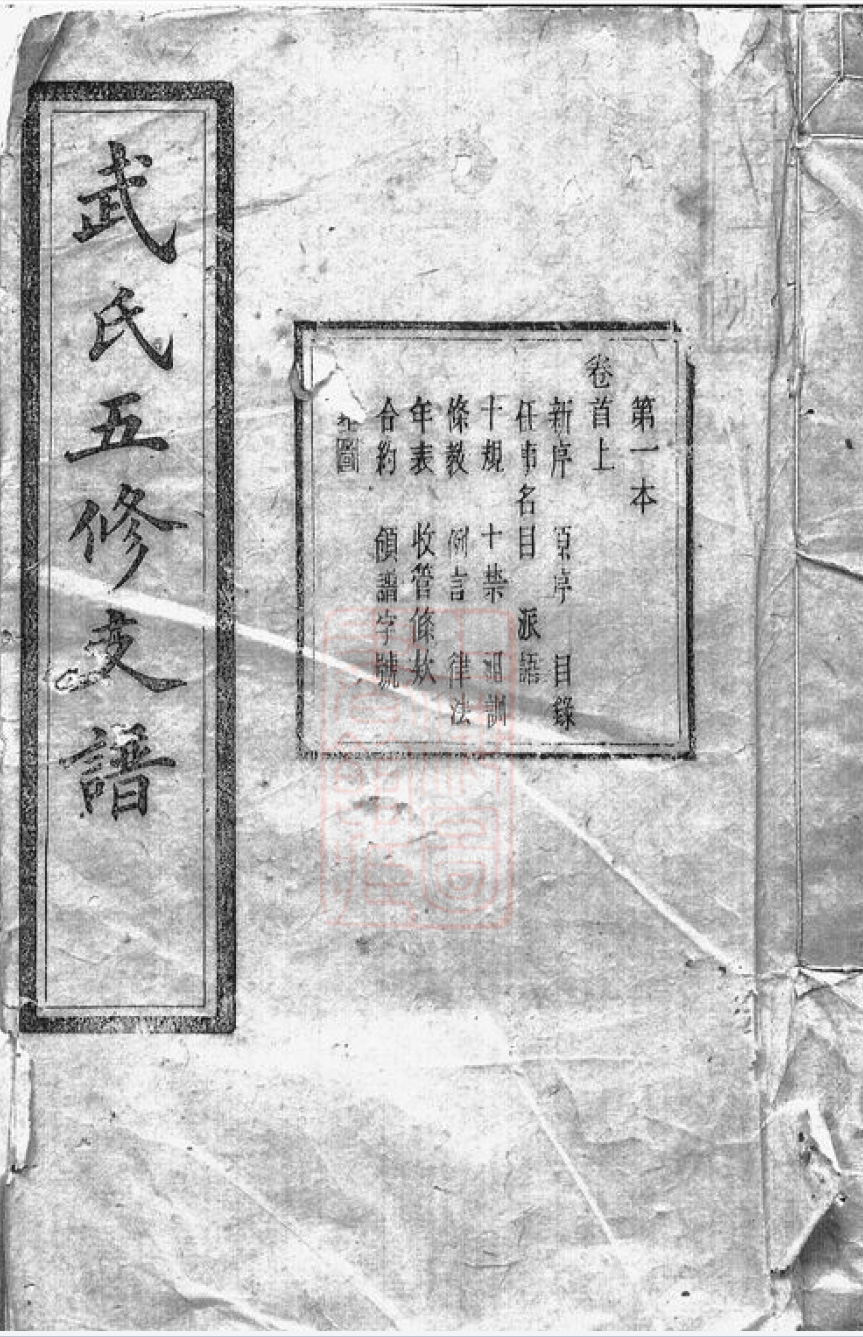 第一本
卷首上
新序 原序 目錄
任事名目 派語
十規 十禁 訓
條教 例言 律法
年表 收管條欵
合約 領譜字號
圖
武氏五修支譜